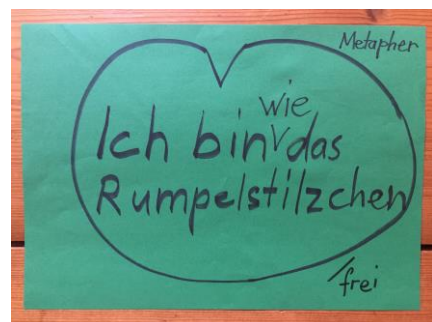 Metapher
wie
Ich bin das
Rumpelstilzchen
frei